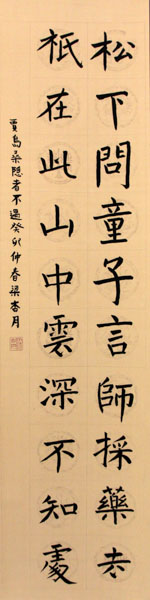 松下問童子言師採藥去
祇在此山中雲深不知處
賈島尋隱者不遇癸卯仲春梁杏月